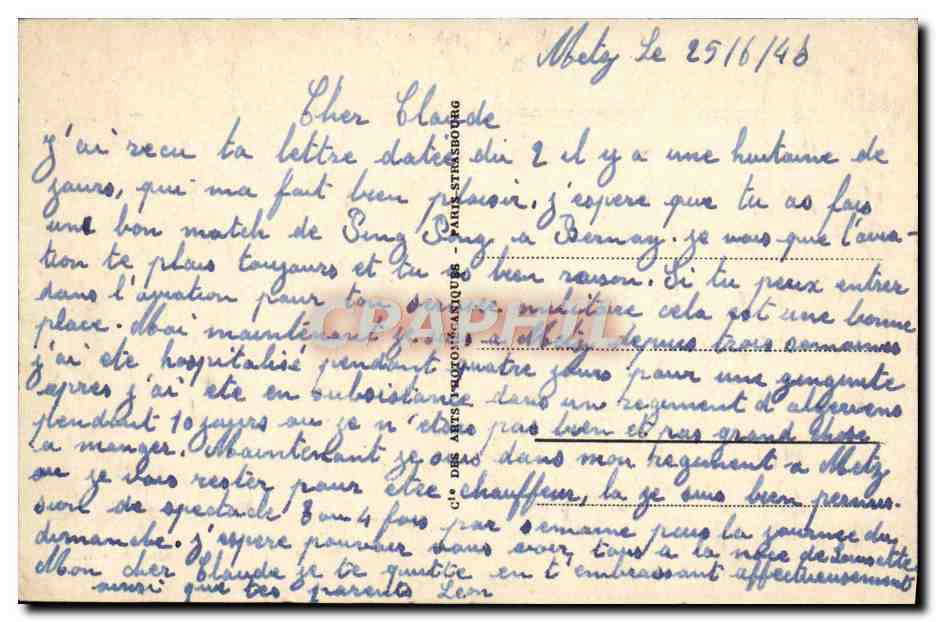 Metz Le 25/6/46
Cher Claude
J'ai recu ta lettre datée du 2 il y a une huitaine de
jours, qui ma fait bien plaisir. j'espere que tu as fais
une bon match de Ping Pong a Bernay. je vois que l'avia-
tion te plais toujours et tu as bien raison. Si tu peux entrer
dans l'aviation pour ton service militaire cela est une bonne
place. Moi maintenant je suis a Metz depuis trois semaines
j'ai eté hospitalisé pendant quatre jours pour une gingivite
apres j'ai ete en subsistance dans un regiment d'algeriens
pendant 10 jours ou je n'etais pas bien et pas grand chose
la manger. Maintenant je suis dans mon regiment a Metz
ou je vais rester pour etre chauffeur, la je suis bien permis.
sion de spectacle 3 ou 4 fois par semaine puis la journee du
dimanche. j'espere pouvoir vous voir tous a la noce de
Mon cher Claude je te quitte en t'embrassant affectueusement
ainsi que tes parents Leon
Cie DES ARTS PHOTOMÉCANIQUES - PARIS-STRASBOURG
CPAPHIL